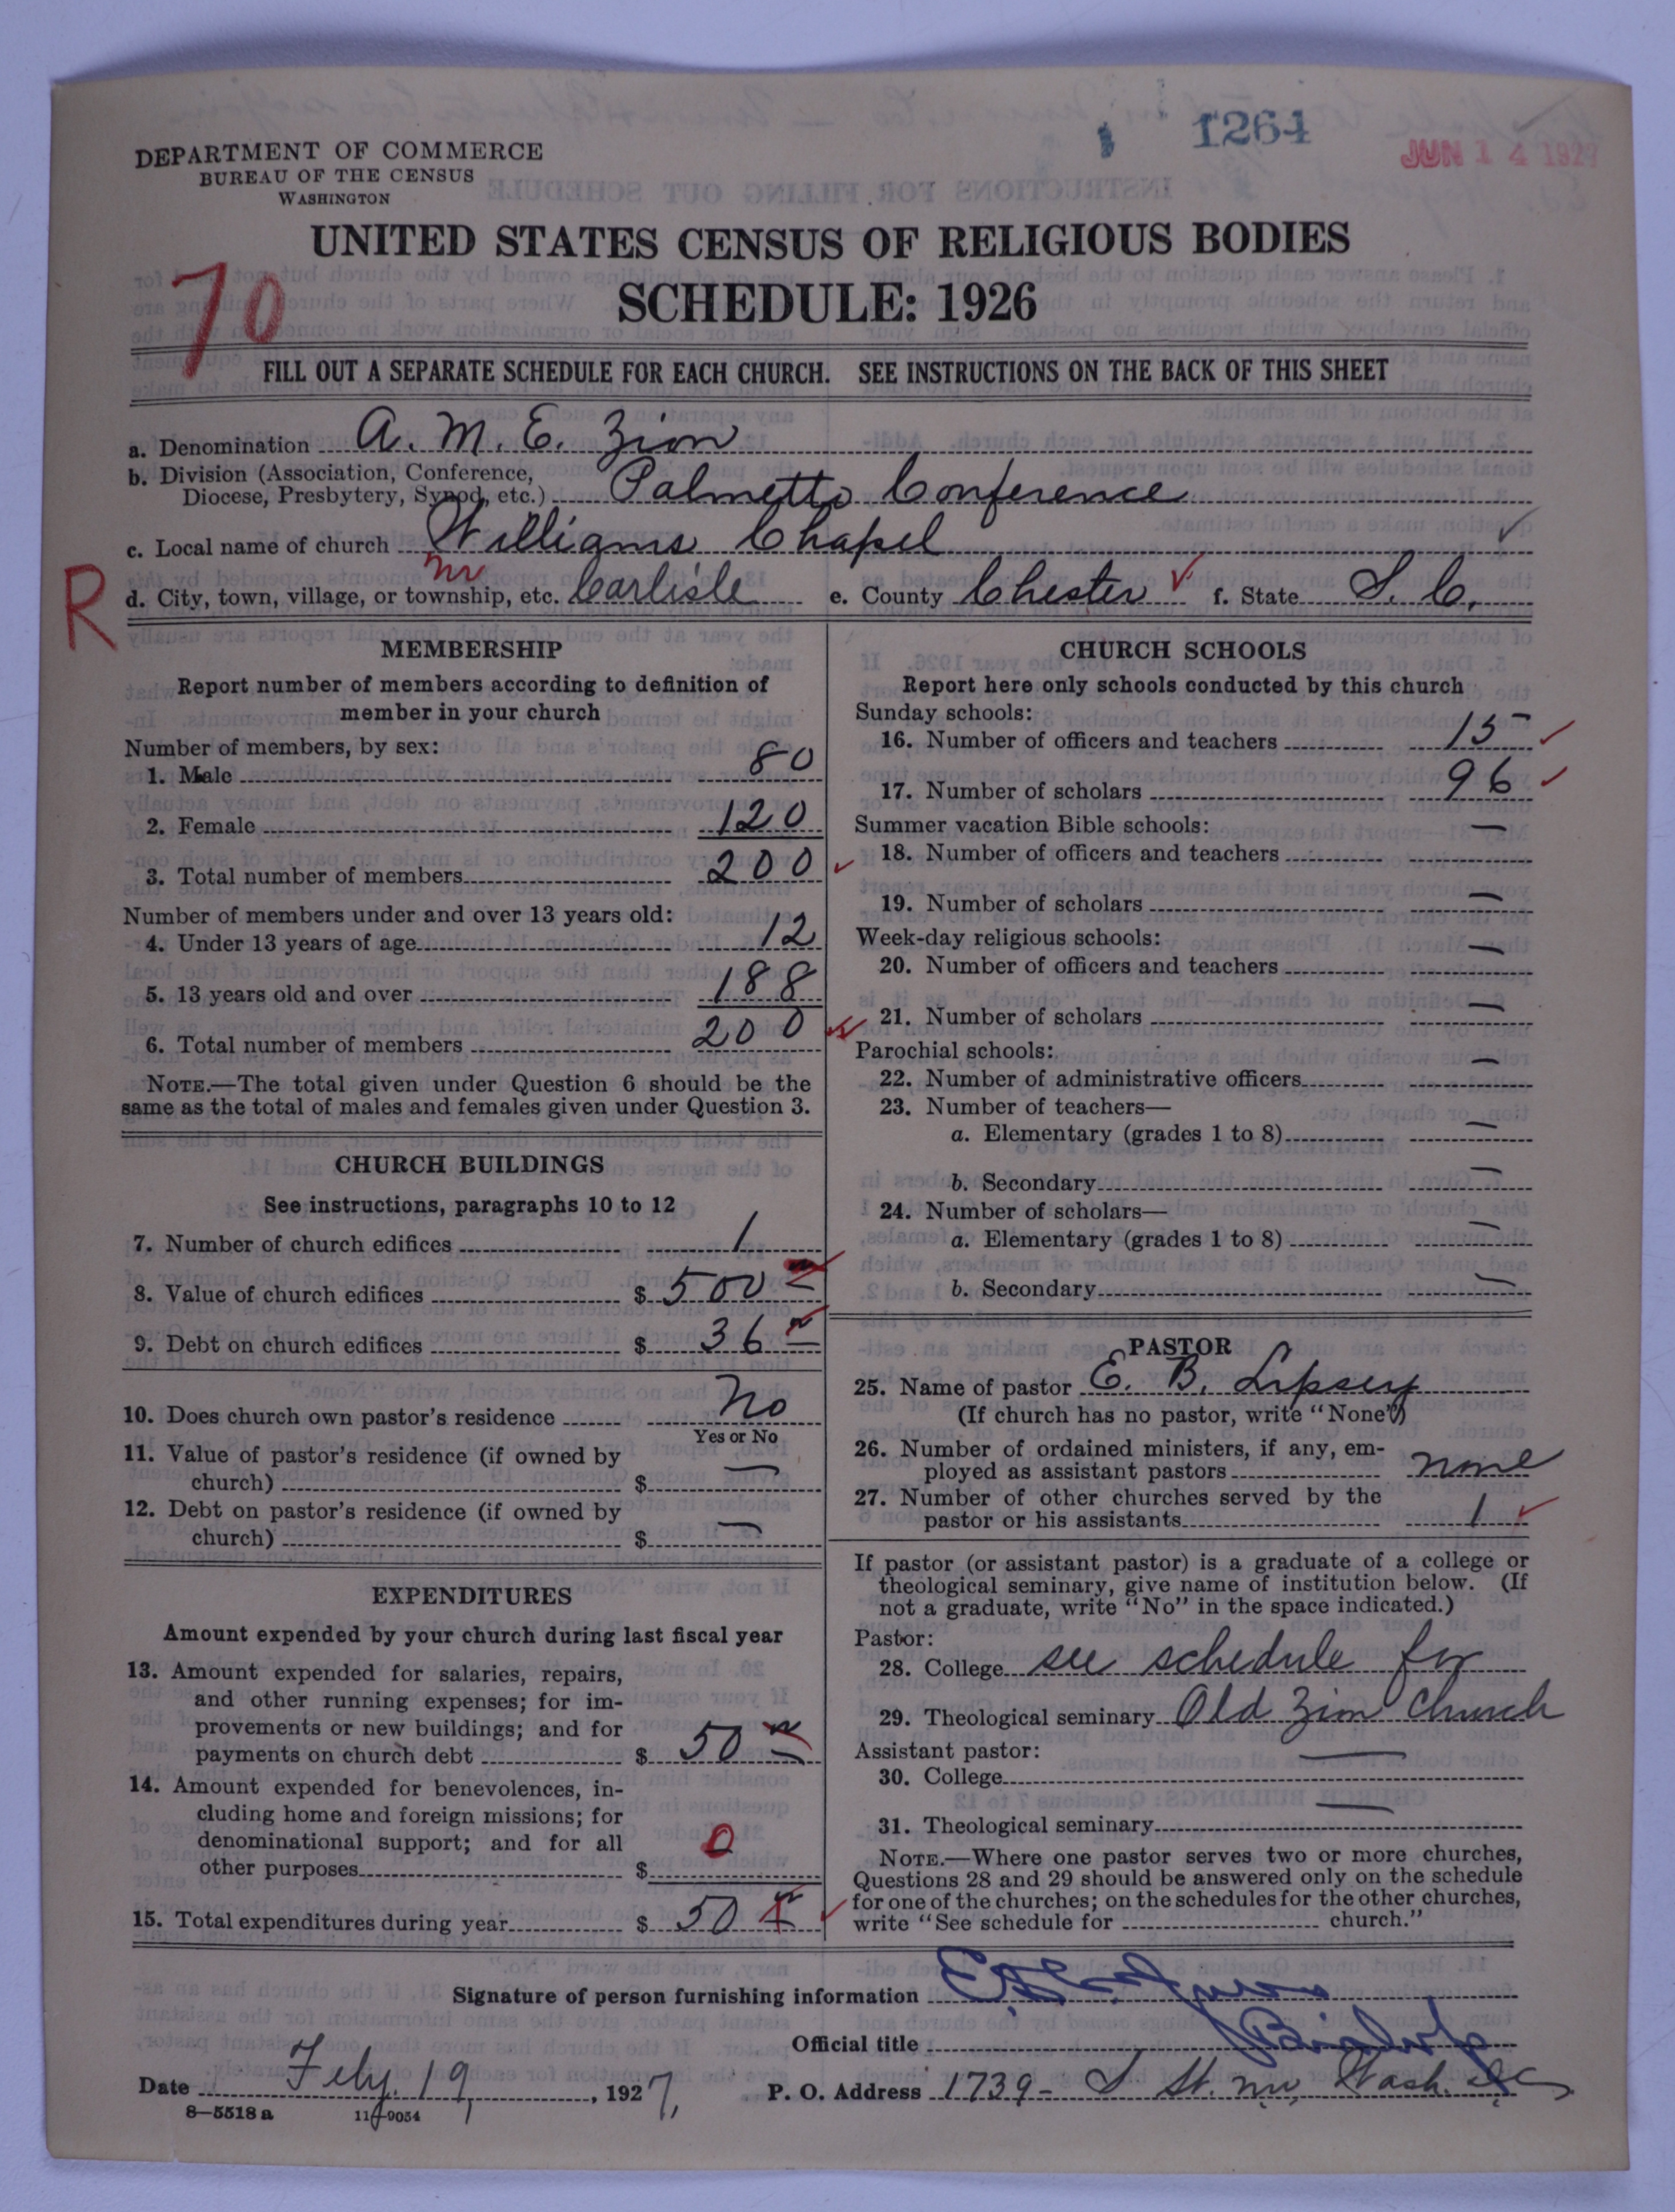 1264
JUN 14 1927
DEPARTMENT OF COMMERCE
BUREAU OF THE CENSUS
WASHINGTON
UNITED STATES CENSUS OF RELIGIOUS BODIES
SCHEDULE: 1926
70
FILL OUT A SEPARATE SCHEDULE FOR EACH CHURCH. SEE INSTRUCTIONS ON THE BACK OF THIS SHEET
a. Denomination A. M. E. Zion
b. Division (Association, Conference,
Diocese, Presbytery, Synod, etc.) Palmetto Conference
c. Local name of church Williams Chapel
R
nr
d. City, town, village, or township, etc. Carlisle e. County Chester f. State S. C.
MEMBERSHIP
Report number of members according to definition of
member in your church
Number of members, by sex:
1. Male 80
2. Female 120
3. Total number of members 200
Number of members under and over 13 years old:
4. Under 13 years of age 12
5. 13 years old and over 188
6. Total number of members 200
NOTE.—The total given under Question 6 should be the
same as the total of males and females given under Question 3.
CHURCH BUILDINGS
See instructions, paragraphs 10 to 12
7. Number of church edifices 1
8. Value of church edifices $ 500
9. Debt on church edifices $ 36
10. Does church own pastor's residence No
Yes or No
11. Value of pastor's residence (if owned by
church) $ —
12. Debt on pastor's residence (if owned by
church) $ —
EXPENDITURES
Amount expended by your church during last fiscal year
13. Amount expended for salaries, repairs,
and other running expenses; for im-
provements or new buildings; and for
payments on church debt $ 50
14. Amount expended for benevolences, in-
cluding home and foreign missions; for
denominational support; and for all
other purposes $ 0
15. Total expenditures during year $ 50
CHURCH SCHOOLS
Report here only schools conducted by this church
Sunday schools:
16. Number of officers and teachers 15
17. Number of scholars 96
Summer vacation Bible schools:
18. Number of officers and teachers —
19. Number of scholars —
Week-day religious schools:
20. Number of officers and teachers —
21. Number of scholars —
Parochial schools:
22. Number of administrative officers —
23. Number of teachers—
a. Elementary (grades 1 to 8) —
b. Secondary —
24. Number of scholars—
a. Elementary (grades 1 to 8) —
b. Secondary —
PASTOR
25. Name of pastor E. B. Lipsey
(If church has no pastor, write "None")
26. Number of ordained ministers, if any, em-
ployed as assistant pastors none
27. Number of other churches served by the
pastor or his assistants 1
If pastor (or assistant pastor) is a graduate of a college or
theological seminary, give name of institution below. (If
not a graduate, write "No" in the space indicated.)
Pastor:
28. College see schedule for
29. Theological seminary Old Zion Church
Assistant pastor:
30. College —
31. Theological seminary —
NOTE.—Where one pastor serves two or more churches,
Questions 28 and 29 should be answered only on the schedule
for one of the churches; on the schedules for the other churches,
write "See schedule for church."
Signature of person furnishing information
Official title Bishop
Date Feby. 19, 1927, P. O. Address 1739- S St. nw Wash. DC
8—5518 a 11—9054